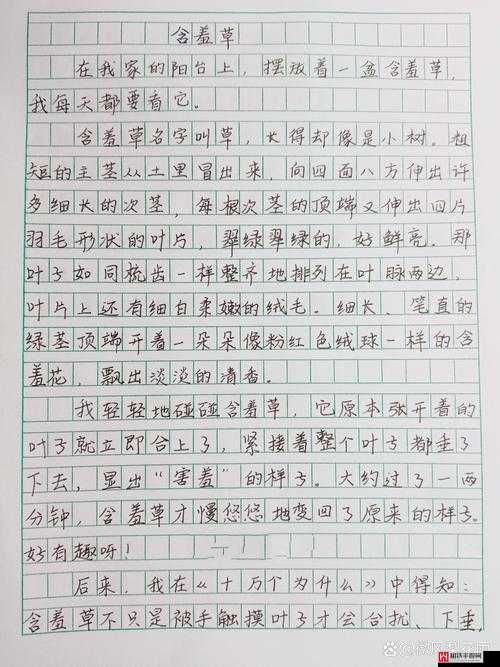 含羞草
在我家的阳台上，摆放着一盆含羞草，
我每天都要看它。
含羞草名字叫草，长得却像是小树。粗
短的主茎从土里冒出来，向四面八方伸出许
多细长的次茎，每根次茎的顶端又伸出四片
羽毛形状的叶片，翠绿翠绿的，好鲜亮。那
叶子如同梳齿一样整齐地排列在叶脉两边，
叶片上还有细白柔嫩的绒毛。细长、笔直的
绿茎顶端开着一朵朵像粉红色绒球一样的含
羞花，飘出淡淡的清香。
我轻轻地碰碰含羞草，它原本张开着的
叶子就立即合上了，紧接着整个叶子都垂了
下去，显出“害羞”的样子。大约过了一两
分钟，含羞草才慢悠悠地变回了原来的样子。
好有趣呀！
后来，我在《十万个为什么》中得知：
含羞草不只是被手触摸叶子才会合拢、下垂，